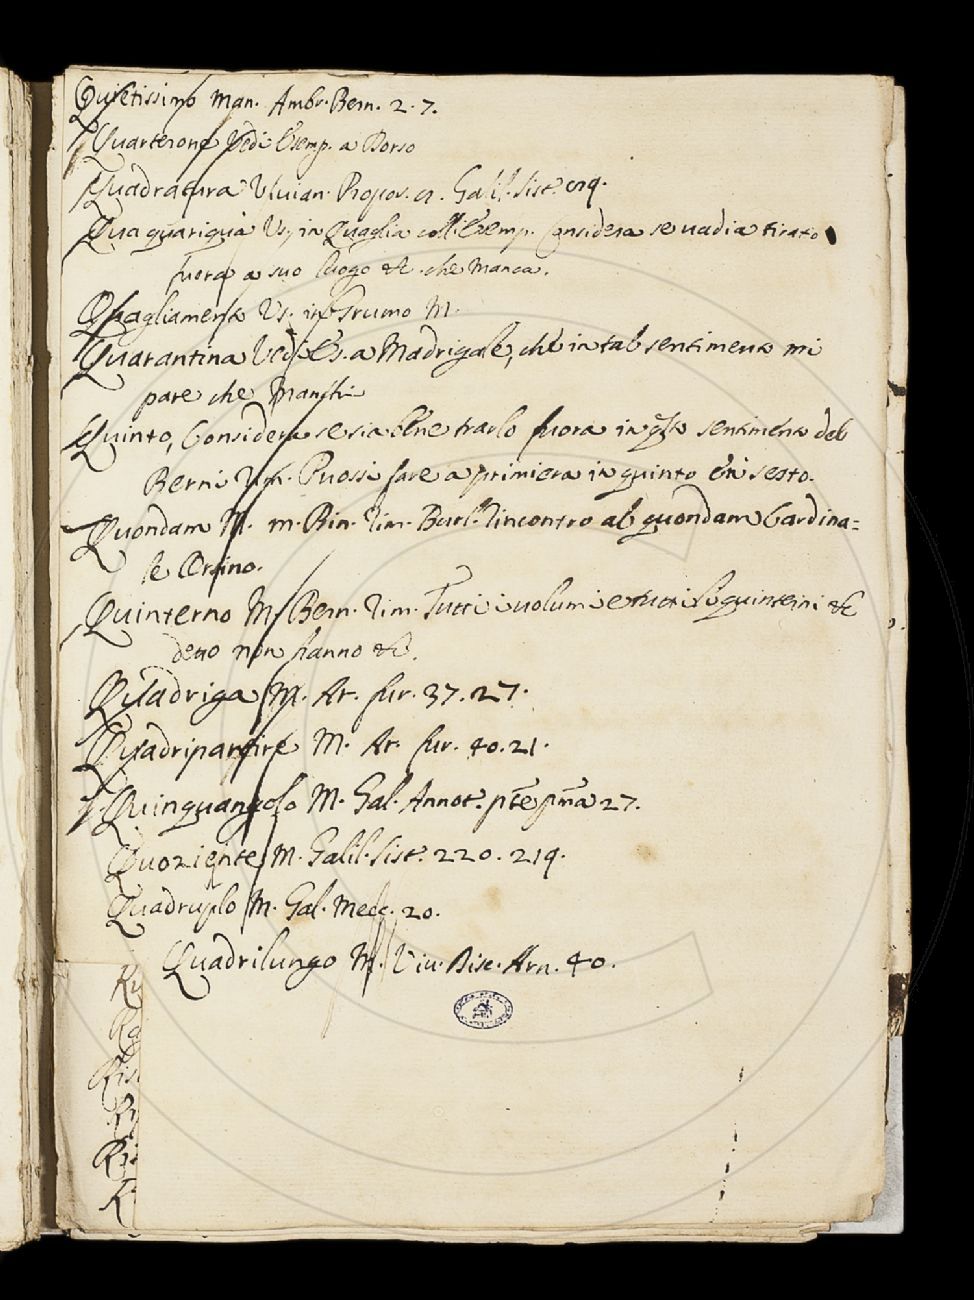 Quietissimo Man. Ambr. Bern. 2. 7.
Quarterone Vedi Esemp. a Borso
Quadratura Viuian. Propos. Galil. Sist.
Qua qua riqua Us. in Quaglia coll'Esemp. Considera se uadia tirato
fuora a suo luogo &c. che manca.
Quagliamento Us. in Grumo M.
Quarantina Ved. Es. a Madrigale, che in tal sentimento mi
pare che Manchi
Quinto, Considera se sia bene trarlo fuora in qsto sentimento del
Berni Rim. Puossi fare a primiera in quinto e'n sesto.
Quondam M. m. Bin. Rim. Burl. Rincontro al quondam Cardina=
le Orsino.
Quinterno M. Bern. Rim. Tutti i uolumi e tutti i quinterni &c
detto non hanno &c.
Quadriga M. Ar. fur. 37. 27.
Quadripartire M. Ar. fur. 40. 21.
Quinquangolo M. Gal. Annot. pte pma 27.
Quoziente M. Galil. Sist. 220. 219.
Quadruplo M. Gal. Mecc. 20.
Quadrilungo M. Viu. Disc. Arn. 40.